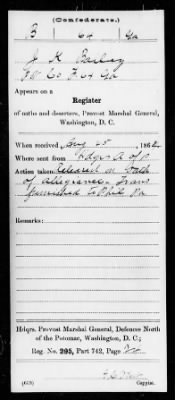 (Confederate.)
B 64 Ga
J. K. Bailey
Co F. 64 Ga
Appears on a
Register
of oaths and deserters, Provost Marshal General,
Washington, D. C.
When received Aug 25, 186
Where sent from Hdqrs A of P
Action taken Released on Oath
of Allegiance - Trans
furnished to Phil. Pa
Remarks:
Hdqrs. Provost Marshal General, Defences North
of the Potomac, Washington, D. C.;
Reg. No. 295, Part 742, Page
(639)
Copyist.